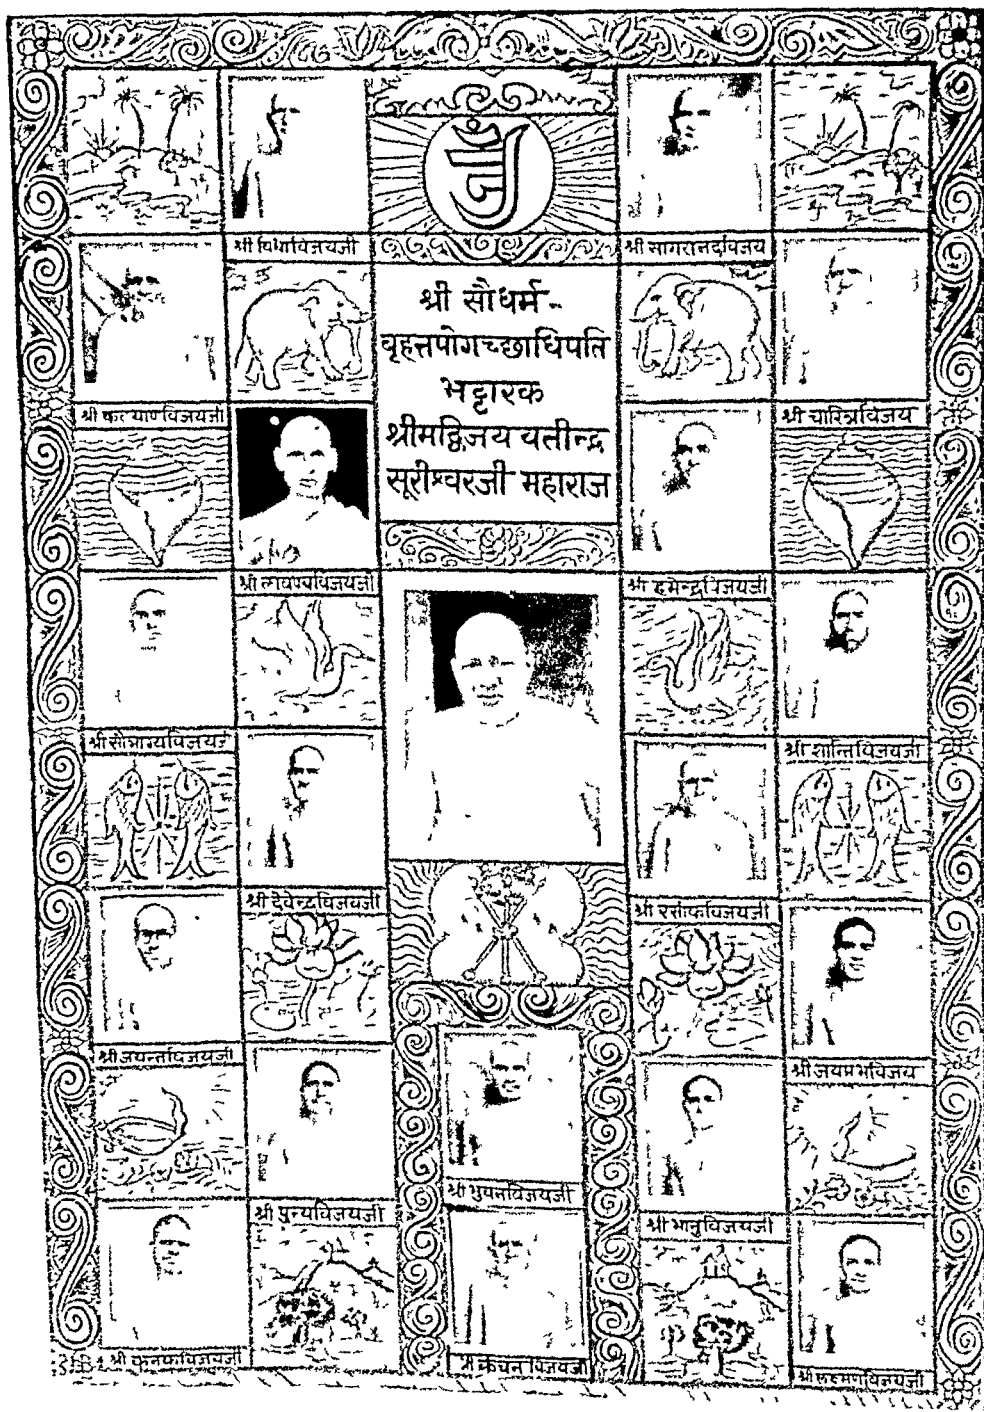 श्री विद्याविजयजी
श्री सागरानंदविजय
श्री सौधर्म-
वृहत्तपोगच्छाधिपति
भट्टारक
श्रीमद्विजय यतीन्द्र
सूरीश्वरजी महाराज
श्री कल्याणविजयजी
श्री चारित्रविजय
श्री लावण्यविजयजी
श्री हमेन्द्रविजयजी
श्री सौभाग्यविजयजी
श्री शान्तिविजयजी
श्री देवेन्द्रविजयजी
श्री रसीकविजयजी
श्री जयन्तविजयजी
श्री जयप्रभविजय
श्री भुवनविजयजी
श्री पुन्यविजयजी
श्री भानुविजयजी
श्री कनकविजयजी
श्री कंचनविजयजी
श्री लक्ष्मणविजयजी